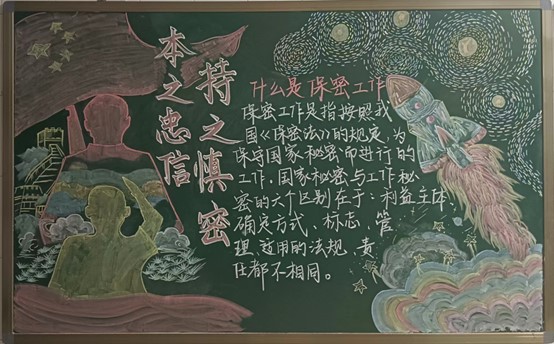 本之忠信
持之慎密
什么是保密工作
保密工作是指按照我
国《保密法》的规定，为
保守国家秘密而进行的
工作。国家秘密与工作秘
密的六个区别在于：利益主体、
确定方式、标志、管
理适用的法规，责
任都不相同。